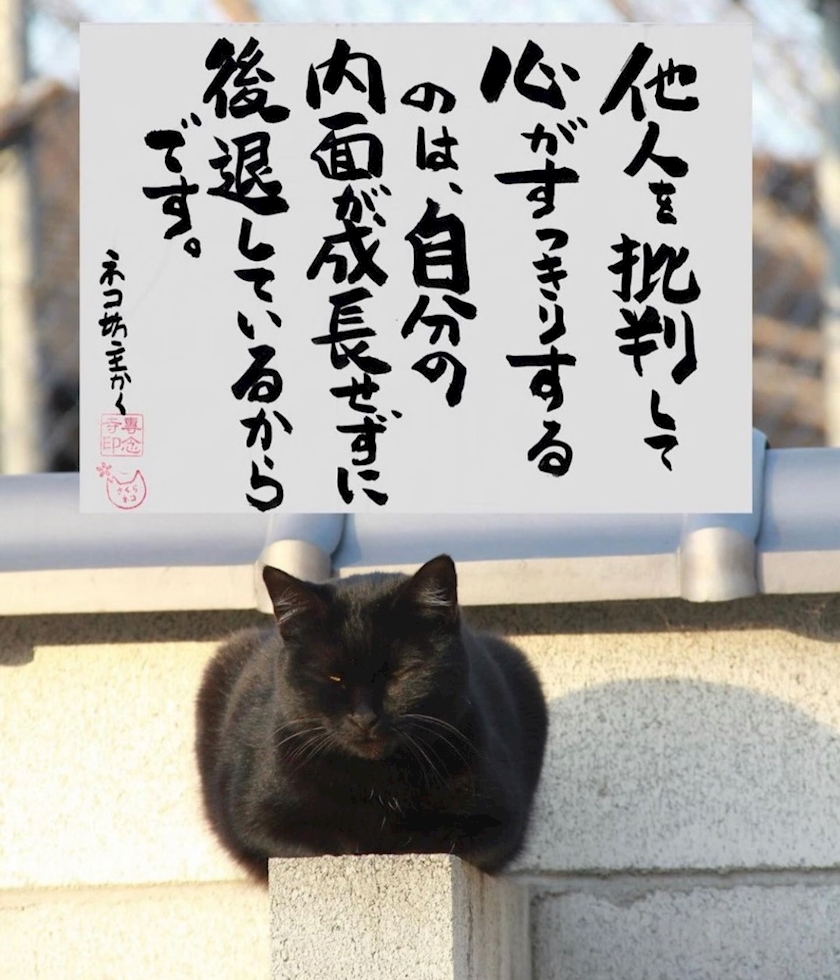 他人を批判して
心がすっきりする
のは、自分の
内面が成長せずに
後退しているから
です。
ネコ坊主かく
専念
寺印
さくら
ネコ